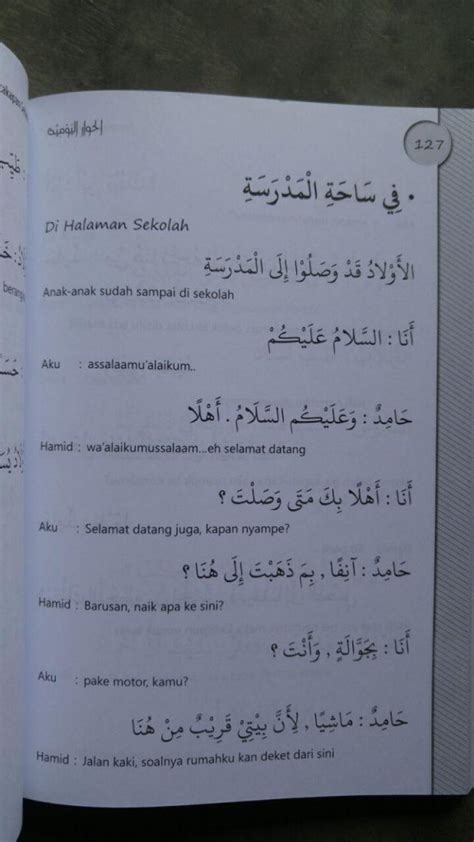 الحوار اليومية
127
• فِي سَاحَةِ الْمَدْرَسَةِ
Di Halaman Sekolah
الأَوْلَادُ قَدْ وَصَلُوْا إِلَى الْمَدْرَسَةِ
Anak-anak sudah sampai di sekolah
أَنَا : السَّلَامُ عَلَيْكُمْ
Aku : assalaamu'alaikum..
حَامِدٌ : وَعَلَيْكُم السَّلَامُ . أَهْلًا
Hamid : wa'alaikumussalaam...eh selamat datang
أَنَا : أَهْلًا بِكَ مَتَى وَصَلْتَ ؟
Aku : Selamat datang juga, kapan nyampe?
حَامِدٌ : آنِفًا , بِمَ ذَهَبْتَ إِلَى هُنَا ؟
Hamid : Barusan, naik apa ke sini?
أَنَا : بِجَوَّالَةٍ , وَأَنْتَ ؟
Aku : pake motor, kamu?
حَامِدٌ : مَاشِيًا , لِأَنَّ بَيْتِيْ قَرِيْبٌ مِنْ هُنَا
Hamid : Jalan kaki, soalnya rumahku kan deket dari sini